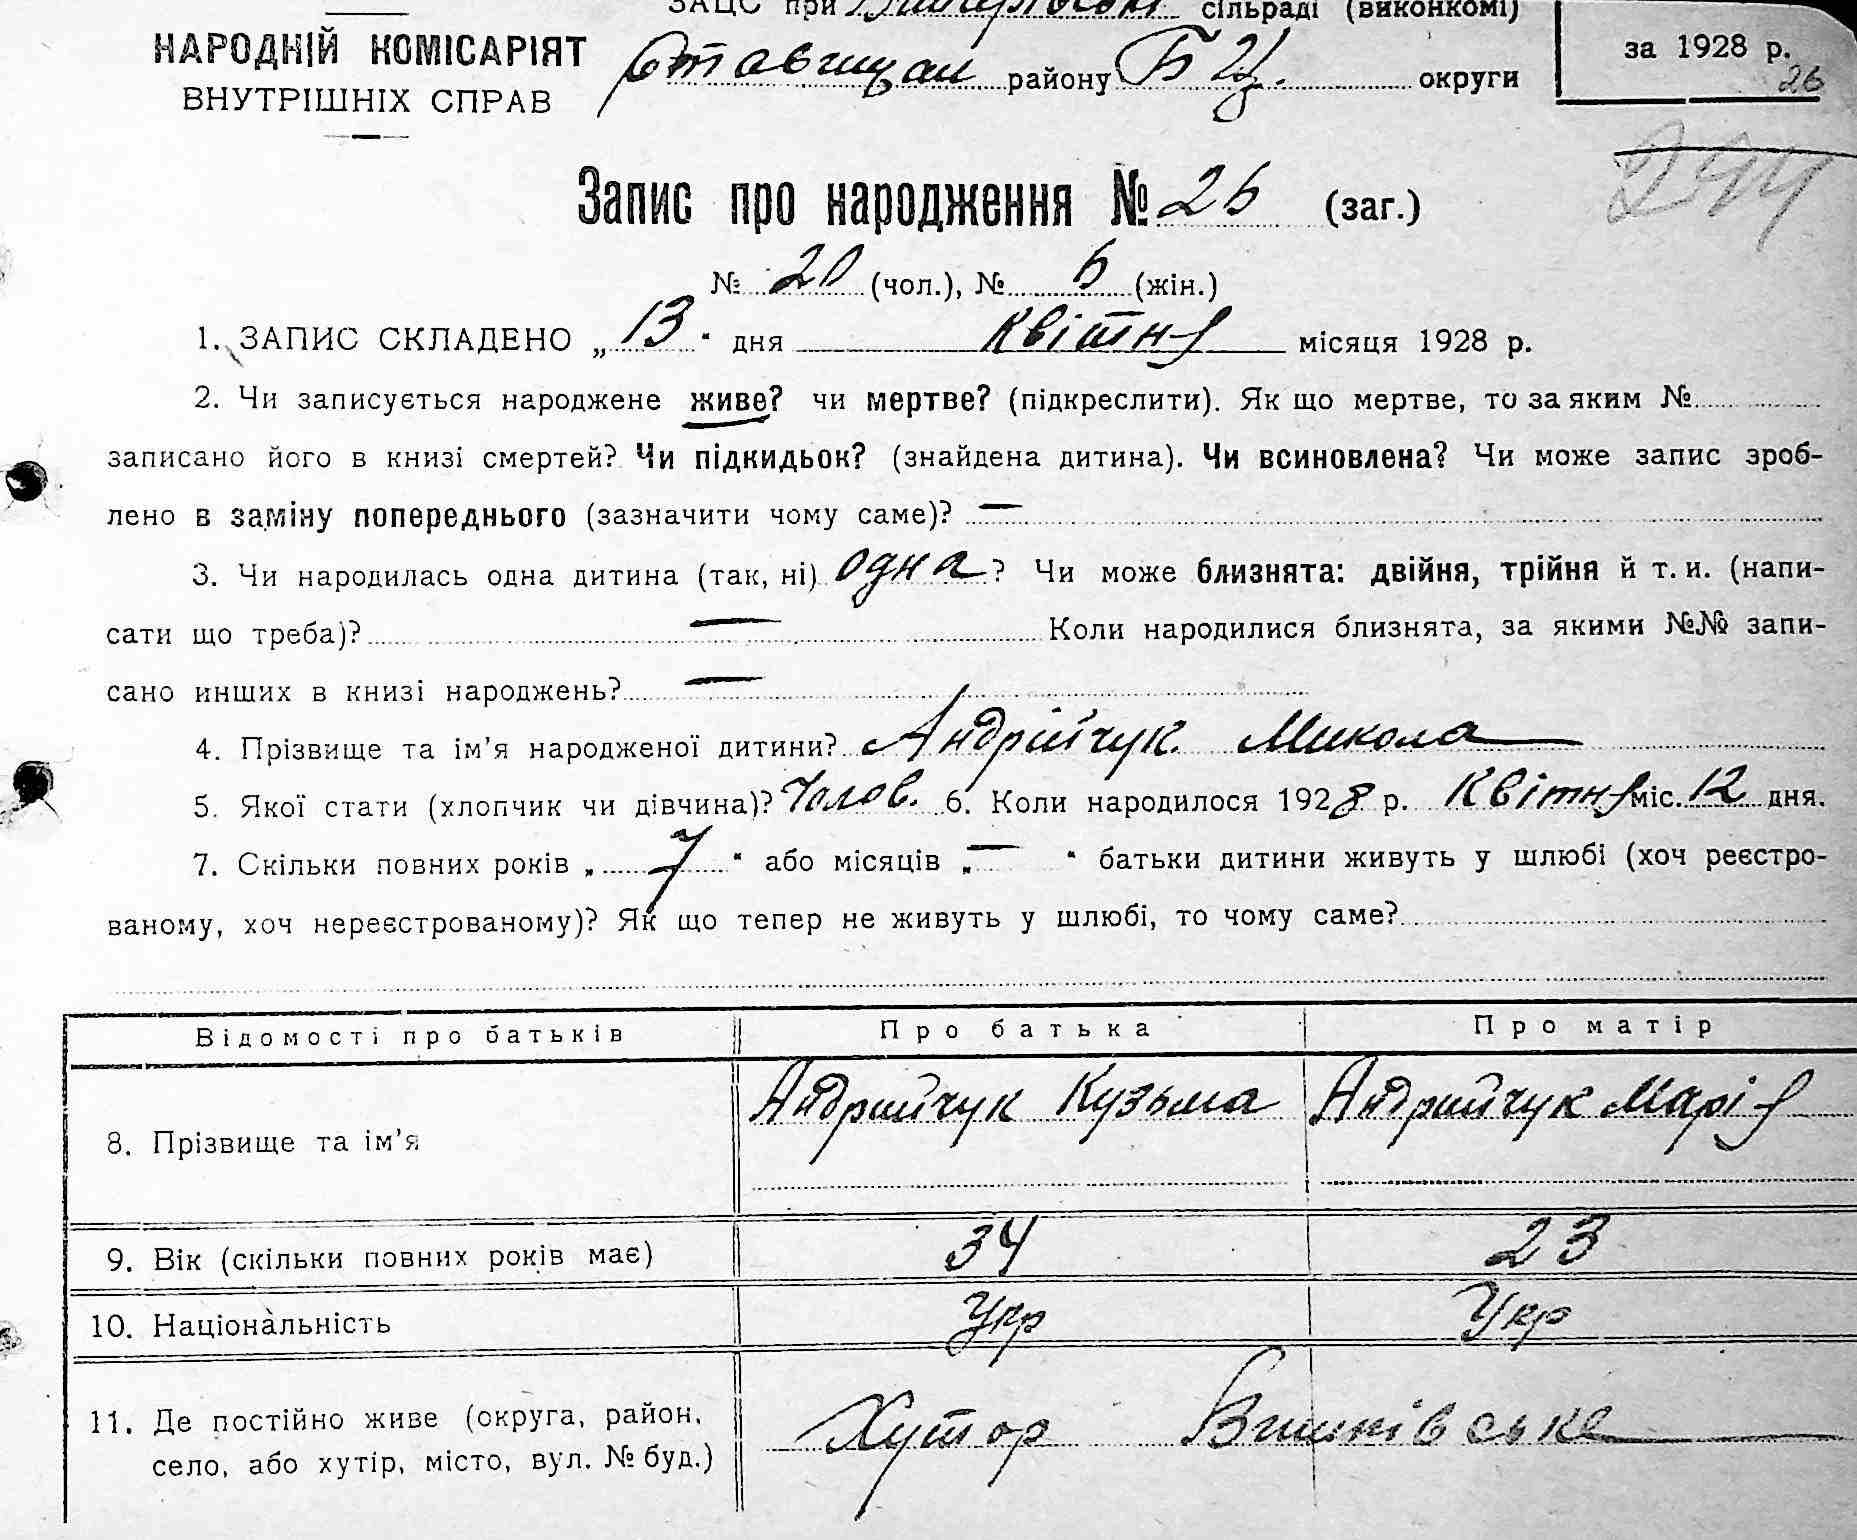 ЗАЦС при сільраді (виконкомі)
НАРОДНІЙ КОМІСАРІЯТ
ВНУТРІШНІХ СПРАВ
Ставищан району БЦ. округи
за 1928 р.
26
Запис про народження № 26 (заг.)
244
№ 20 (чол.), № 6 (жін.)
1. ЗАПИС СКЛАДЕНО „ 13 " дня квітня місяця 1928 р.
2. Чи записується народжене живе? чи мертве? (підкреслити). Як що мертве, то за яким №
записано його в книзі смертей? Чи підкидьок? (знайдена дитина). Чи всиновлена? Чи може запис зроб-
лено в заміну попереднього (зазначити чому саме)? —
3. Чи народилась одна дитина (так, ні) одна ? Чи може близнята: двійня, трійня й т. и. (напи-
сати що треба)? — Коли народилися близнята, за якими №№ запи-
сано инших в книзі народжень? —
4. Прізвище та ім'я народженої дитини? Андрійчук Микола
5. Якої стати (хлопчик чи дівчина)? Чолов. 6. Коли народилося 1928 р. квітня міс. 12 дня.
7. Скільки повних років „ 7 " або місяців „ — " батьки дитини живуть у шлюбі (хоч реєстро-
ваному, хоч нереєстрованому)? Як що тепер не живуть у шлюбі, то чому саме?
Відомості про батьків Про батька Про матір
8. Прізвище та ім'я Андрийчук Кузьма Андрийчук Марія
9. Вік (скільки повних років має) 34 23
10. Національність Укр Укр
11. Де постійно живе (округа, район, село, або хутір, місто, вул. № буд.) Хутор